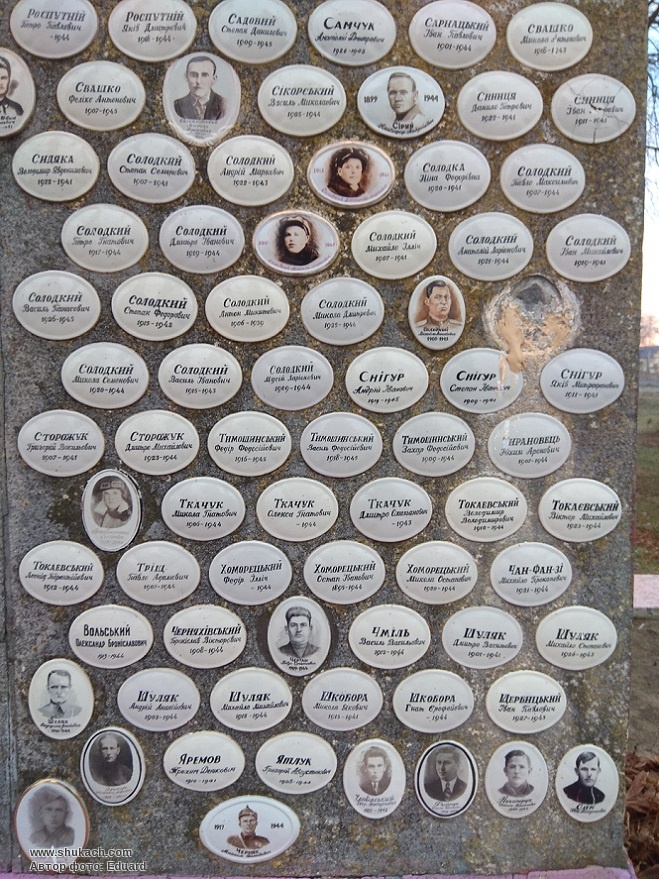 РОСПУТНІЙ
Петро Павлович
-1944
РОСПУТНІЙ
Яків Дмитрович
1918-1944
САДОВИЙ
Степан Данилович
1909-1945
САМЧУК
Анатолій Дмитрович
1926-1945
САРНАЦЬКИЙ
Іван Павлович
1901-1944
СВАШКО
СВАШКО
Фелікс Антонович
1907-1945
СІКОРСЬКИЙ
Василь Миколайович
1925-1944
1899 1944
Сірий
СИНИЦЯ
Данило Петрович
1922-1941
СИНИЦЯ
Іван
1917-1941
СИДЯКА
1922-1941
СОЛОДКИЙ
Степан Семенович
1907-1941
СОЛОДКИЙ
Андрій Маркович
1922-1943
СОЛОДКА
Ніна Федорівна
1920-1941
СОЛОДКИЙ
Павло Максимович
1907-1944
СОЛОДКИЙ
Петро Гнатович
1917-1944
СОЛОДКИЙ
Дмитро Іванович
1919-1944
СОЛОДКИЙ
Михайло Ілліч
1907-1941
СОЛОДКИЙ
Анатолій
1921-1944
СОЛОДКИЙ
Іван Михайлович
1919-1941
СОЛОДКИЙ
Василь Панасович
1926-1945
СОЛОДКИЙ
Степан Федорович
1915-1942
СОЛОДКИЙ
Антон Микитович
1906-1939
СОЛОДКИЙ
Микола Дмитрович
1925-1944
Солодкий
СОЛОДКИЙ
Микола Семенович
1920-1944
СОЛОДКИЙ
Василь Іванович
1915-1943
СОЛОДКИЙ
1909-1944
СНІГУР
Андрій Іванович
1919-1945
СНІГУР
Степан Іванович
СНІГУР
Яків Митрофанович
1911-1941
СТОРОЖУК
Григорій Васильович
1907-1941
СТОРОЖУК
Дмитро Михайлович
1923-1944
ТИМОШИНСЬКИЙ
Федір Федосійович
1916-1945
ТИМОШИНСЬКИЙ
Василь Федосійович
1918-1945
ТИМОШИНСЬКИЙ
Захар Федосійович
1909-1944
ТИРАНОВЕЦЬ
1900-1944
ТКАЧУК
Микола Гнатович
1906-1944
ТКАЧУК
Олекса Гнатович
-1944
ТКАЧУК
Дмитро Степанович
-1943
ТОКАЕВСЬКИЙ
Володимир
Володимирович
1910-1944
ТОКАЕВСЬКИЙ
Віктор Михайлович
1923-1944
ТОКАЕВСЬКИЙ
1912-1944
Павло
1907-1945
ХОМОРЕЦЬКИЙ
Федір Ілліч
-1944
ХОМОРЕЦЬКИЙ
Остап Іванович
1895-1944
ХОМОРЕЦЬКИЙ
Микола Остапович
1920-1944
ЧАН-ФАН-ЗІ
Михайло Прокопович
1921-1944
ВОЛЬСЬКИЙ
Олександр Броніславович
1913-1944
ЧЕРНЯХІВСЬКИЙ
Броніслав Вікторович
1908-1944
ЧМІЛЬ
Василь Васильович
1912-1944
ШУЛЯК
Дмитро Васильович
1901-1941
ШУЛЯК
Михайло Степанович
1926-1943
ШУЛЯК
Андрій
1903-1944
ШУЛЯК
Михайло Михайлович
1918-1944
ШКОБОРА
Микола Якович
1915-1941
ШКОБОРА
Гнат Єрофійович
-1944
ЩЕРБИЦЬКИЙ
Іван Павлович
1927-1943
ЯРЕМОВ
1910-1941
ЯТЛУК
1925-1944
1917 1944
www.shukach.com
Автор фото: Eduard